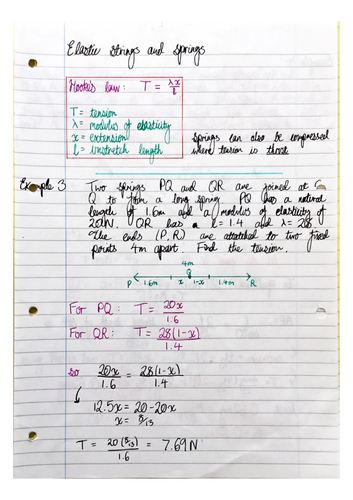 Elastic Strings and Springs
Hooke's law: T = λx/l
T = tension
λ = modulus of elasticity
x = extension
l = unstretch length
Springs can also be compressed
where tension is thrust
Example 3
Two springs PQ and QR are joined at
Q to form a long spring. PQ has a natural
length of 1.6m and a modulus of elasticity of
20N. QR has a l = 1.4 and λ = 28.
The ends (P, R) are attatched to two fixed
points 4m apart. Find the tension.
4m
Q
P 1.6m x 1-x 1.4m R
For PQ: T = 20x/1.6
For QR: T = 28(1-x)/1.4
so 20x/1.6 = 28(1-x)/1.4
12.5x = 20-20x
x = 8/13
T = 20(8/13)/1.6 = 7.69N